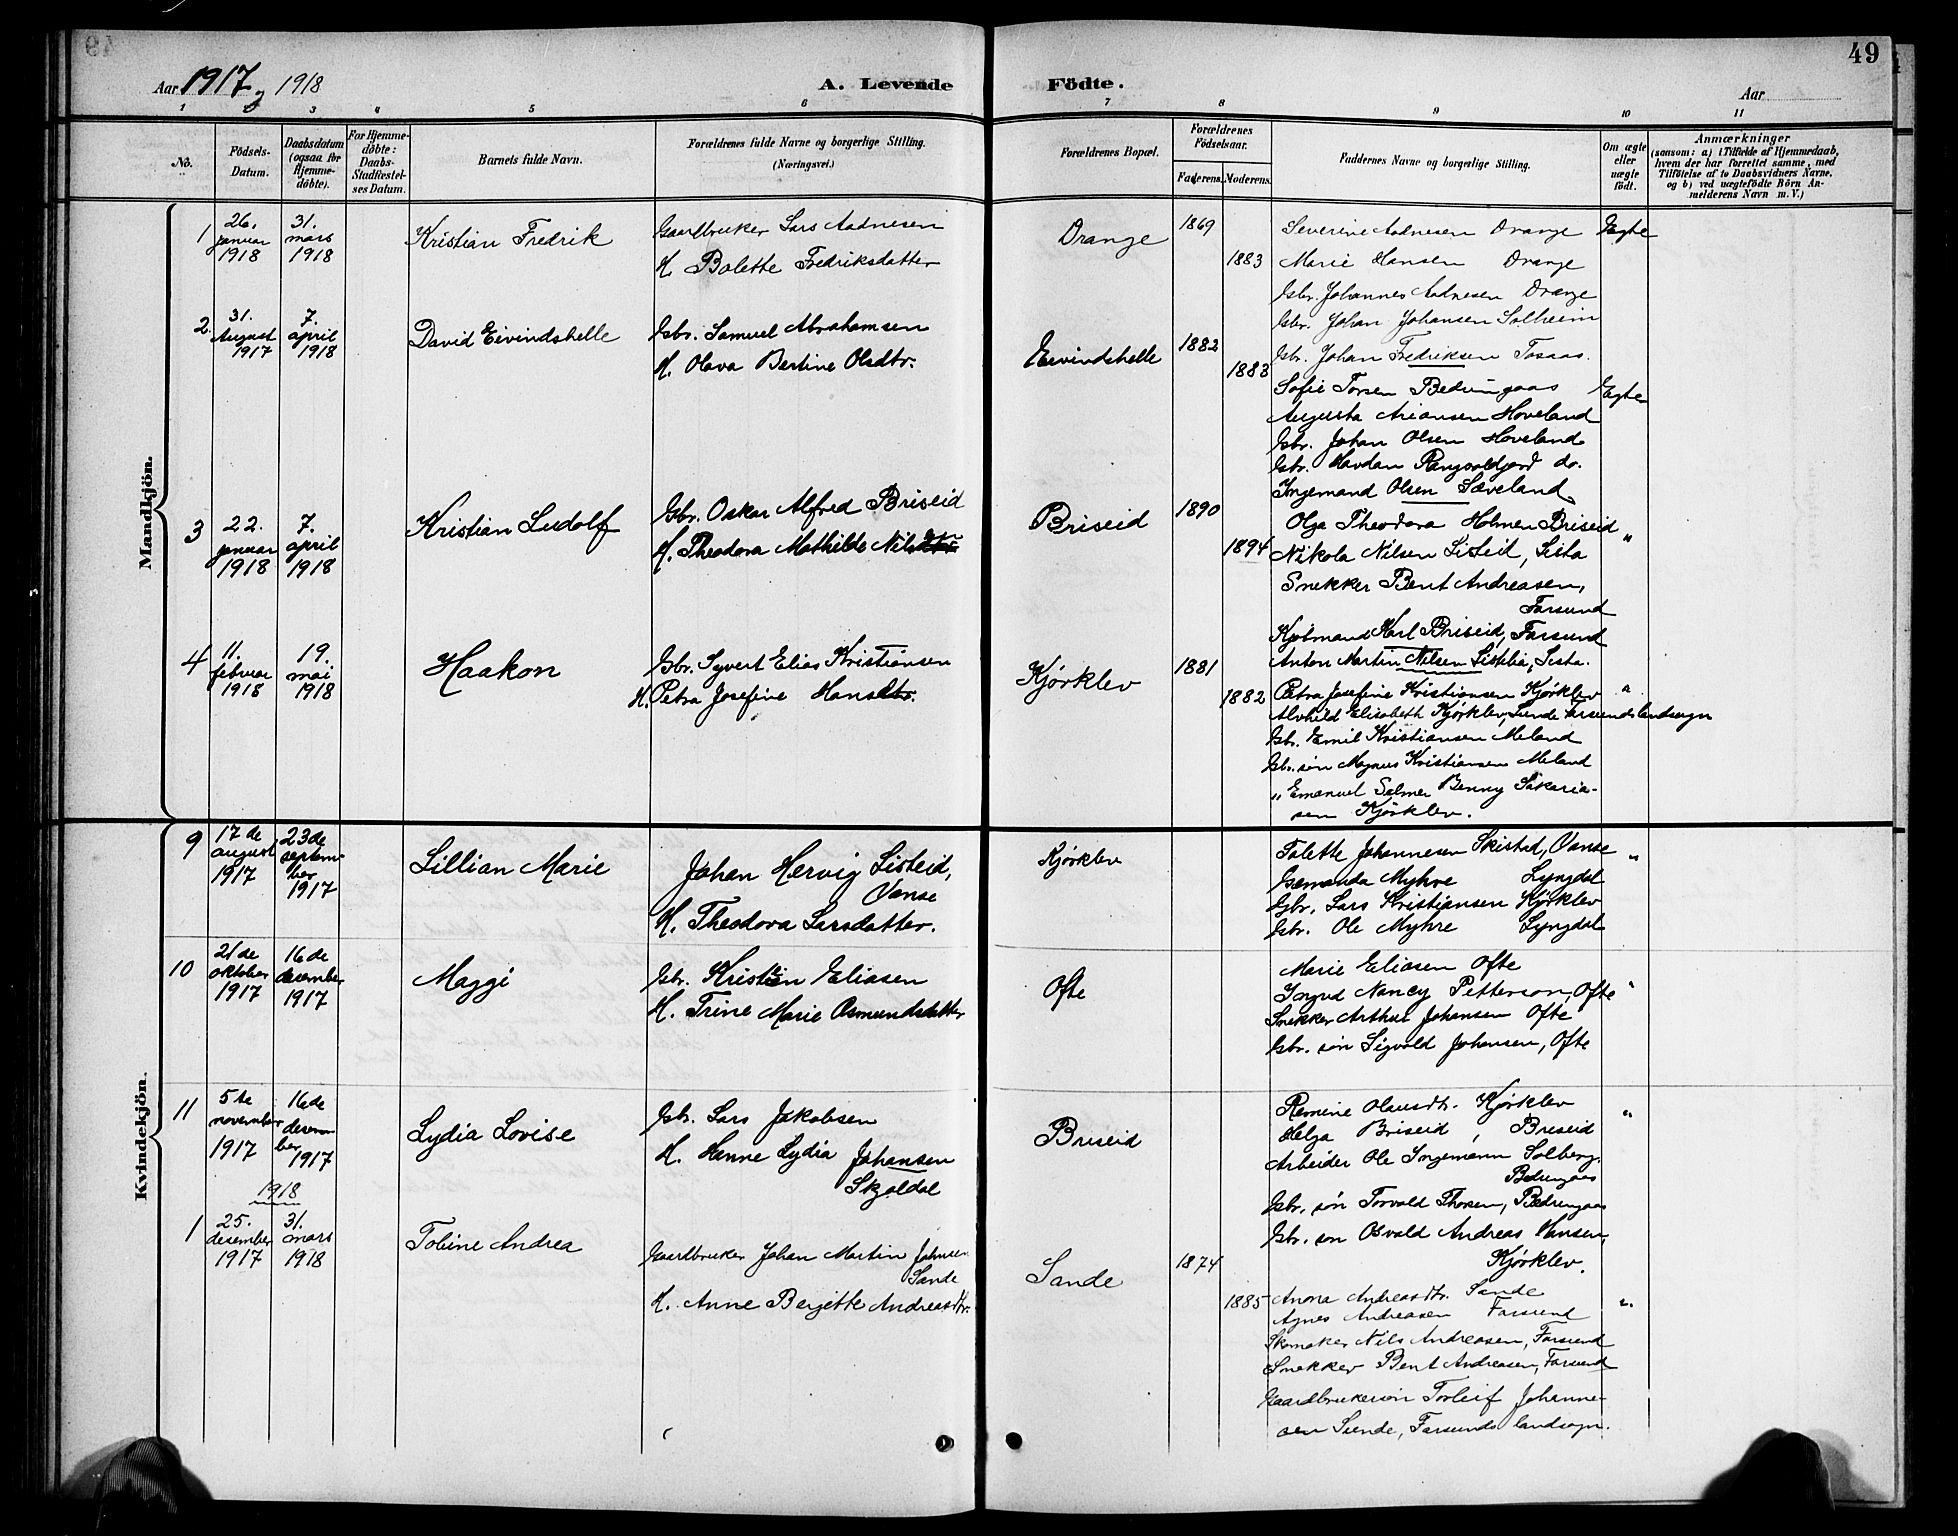 49
Aar 1917 og 1918
A. Levende Födte.
Aar
1 2 3 4 5 6 7 8 9 10 11
No.
Födsels-
Datum.
Daabsdatum
(ogsaa for
Hjemme-
döbte).
For Hjemme-
döbte:
Daabs-
Stadfæstel-
ses Datum.
Barnets fulde Navn.
Forældrenes fulde Navne og borgerlige Stilling.
(Næringsvei.)
Forældrenes Bopæl.
Forældrenes
Födselsaar.
Faderens. Moderens.
Faddernes Navne og borgerlige Stilling.
Om ægte
eller
uægte
födt.
Anmærkninger
(saasom: a) i Tilfælde af Hjemmedaab,
hvem der har forrettet samme, med
Tilföielse af to Daabsvidners Navne,
og b) ved uægtefödte Börn An-
melderens Navn m. V.)
Mandkjön.
1
26.
januar
1918
31.
mars
1918
Kristian Fredrik
Gaardbruker Lars Aadnesen
H. Bolette Fredriksdatter
Drange
1869
1883
Severine Aadnesen Drange
Marie Hansen Drange
Gbr. Johannes Aadnesen Drange
Gbr. Johan Johansen Solheim
Gbr. Johan Fredriksen Tosaas.
Egte
2.
31.
August
1917
7.
april
1918
David Eivindshelle
Gbr. Samuel Abrahamsen
H. Olava Bertine Olsdtr.
Eivindshelle
1882
1883
Sofie Torsen Bedringaas
Augusta Ariansen Hoveland
Gbr. Johan Olsen Hoveland
Gbr. Havdan do.
Ingemand Olsen Sæveland
Egte
3
22.
januar
1918
7.
april
1918
Kristian Ludolf
Gbr. Oskar Alfred Briseid
H. Theodora Mathilde Nilsdtr
Briseid
1890
1894
Olga Theodora Holmen Briseid
Nikola Nilsen Listeid, Lista
Snekker Bent Andreasen,
Farsund
Kjøbmand Karl Briseid, Farsund
Anton Martin Nilsen Lista.
"
4
11.
februar
1918
19.
mai
1918
Haakon
Gbr. Syvert Elias Kristiansen
H. Petra Josefine Hansdtr.
Kjørklev
1881
1882
Petra Josefine Kristiansen Kjørklev
Alvhild Elisabeth Kjørklev, Sunde Farsunds landsogn
Gbr. Emil Kristiansen Meland
Gbr. søn Magnus Kristiansen Meland
" Emanuel Salmer Benny Sakaria-
sen Kjørklev.
"
Kvindekjön.
9
17de
august
1917
23de
septem-
ber
1917
Lillian Marie
Johan Hervig Listeid,
Vanse
H. Theodora Larsdatter.
Kjørklev
Tolette Johannesen Skistad, Vanse
Gemanda Myhre Lyngdal
Gbr. Lars Kristiansen Kjørklev
Gbr. Ole Myhre Lyngdal
"
10
21de
oktober
1917
16de
desember
1917
Maggi
Gbr. Kristian Eliasen
H. Trine Marie Osmundsdatter
Ofte
Marie Eliasen Ofte
Ingrid Nancy Petterson, Ofte
Snekker Arthur Johansen Ofte
Gbr. søn Sigvald Johansen, Ofte
"
11
5te
november
1917
16de
desem-
ber
1917
Lydia Lovise
Gbr. Lars Jakobsen
H. Hanne Lydia Johansen
Skjoldal
Briseid
Remine Olausdtr. Kjørklev
Helga Briseid, Briseid
Arbeider Ole Ingemann Solberg.
Bedringaas
Gbr. søn Torvald Thorsen, Bedringaas
Gbr. søn Osvald Andreas Hansen,
Kjørklev.
"
1918
1
25.
desember
1917
31.
mars
1918
Tobine Andrea
Gaardbruker Johan Martin Johnsen
Sande
H. Anne Bergitte Andreasdtr.
Sande
1874
1885
Anna Andreasdtr. Sande
Agnes Andreasen Farsund
Skomaker Nils Andreasen, Farsund
Snekker Bent Andreasen, Farsund
Gaardbrukersøn Torleif Johanne-
sen Sunde, Farsunds landsogn.
"